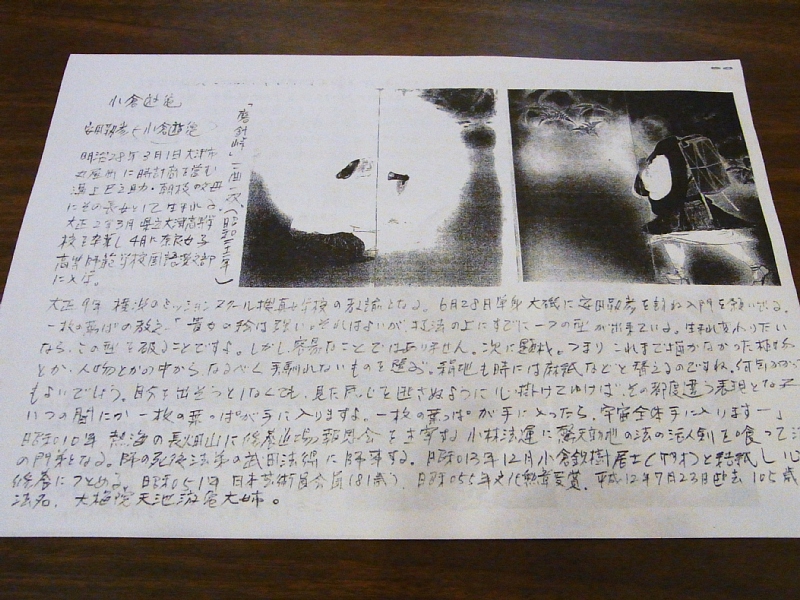 小倉遊亀
安田靫彦と小倉遊亀
明治28年3月1日大津市
丸屋町に
溝上巳之助・朝枝の父母
にその長女として生まれる。
大正2年3月県立大津高等女
校を卒業し4月に奈良女子
高等師範学校国語漢文部
に入学。
「磨針峠」二曲一双(昭和二十二年)
大正9年 横浜のミッションスクール捜真女学校の教諭となる。6月28日単身大磯に安田靫彦を訪ね入門を願い出る。
一枚の葉っぱの教え「貴方の絵は強い。それはよいが、技法の上にすでに一つの型が出来ている。生まれかわりたい
なら、この型を破ることですよ。しかし容易なことではありません。次に題材。つまりこれまで描かなかった植物
とか、人物とかの中から、なるべく手馴れないものを選ぶ。絹地も時には麻紙などと替えるのですね。何年かかって
もよいでしょう。自分を出そうとしなくても、見た感じを逃さぬように心掛けてゆけば、その都度違う表現となって
いつの間にか一枚の葉っぱが手に入りますよ。一枚の葉っぱが手に入ったら、宇宙全体手に入ります―」
昭和10年 熱海の長火山に修養道場報恩会を主宰する小林法運に驚天動地の法の活人剣を喰って
の門弟となる。師の死後法弟の武田法得に師事する。昭和13年12月小倉鉄樹居士(79才)と結婚し心
修養につとめる。昭和51年 日本芸術院会員(81歳)、昭和55年文化勲章受賞、平成12年7月23日逝去 105歳
法名、大梅院天池遊亀大姉。